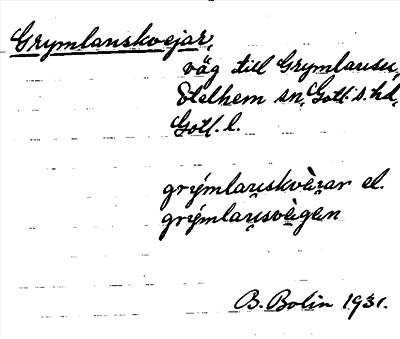 Grymlauskvejar,
väg till Grymlausu,
Etelhem sn, Gotl. s. hd,
Gotl. l.
grýmlau̯skvὲ̀rar el.
grýmlau̯svὲ̀gεn
B. Bolin 1931.